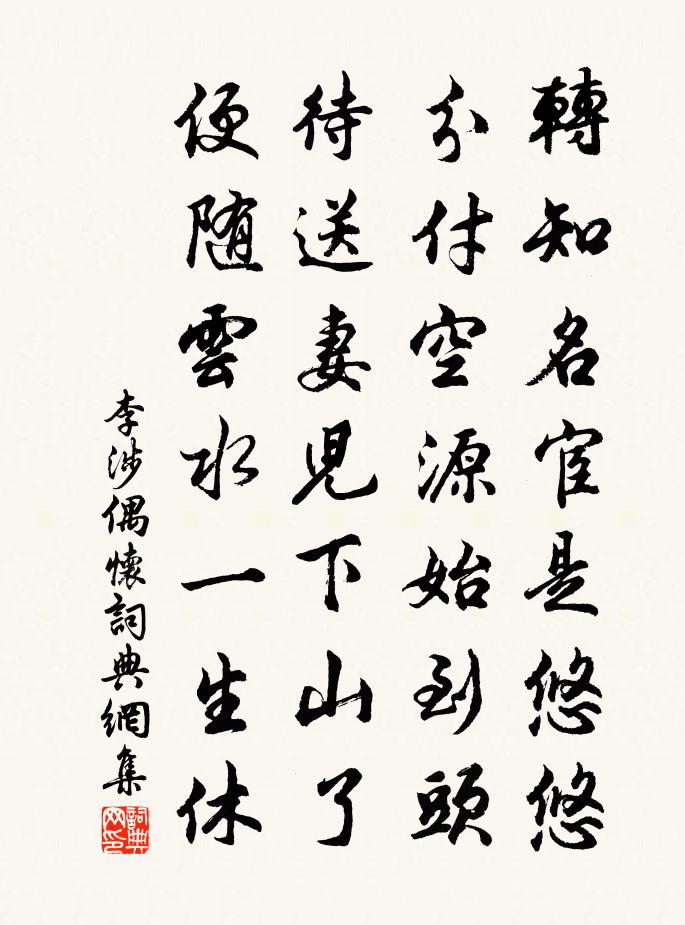 轉知名宦是悠悠
分付空源始到頭
待送妻兒下山了
便隨雲水一生休
李涉偶懷詞典網集
詞典网印